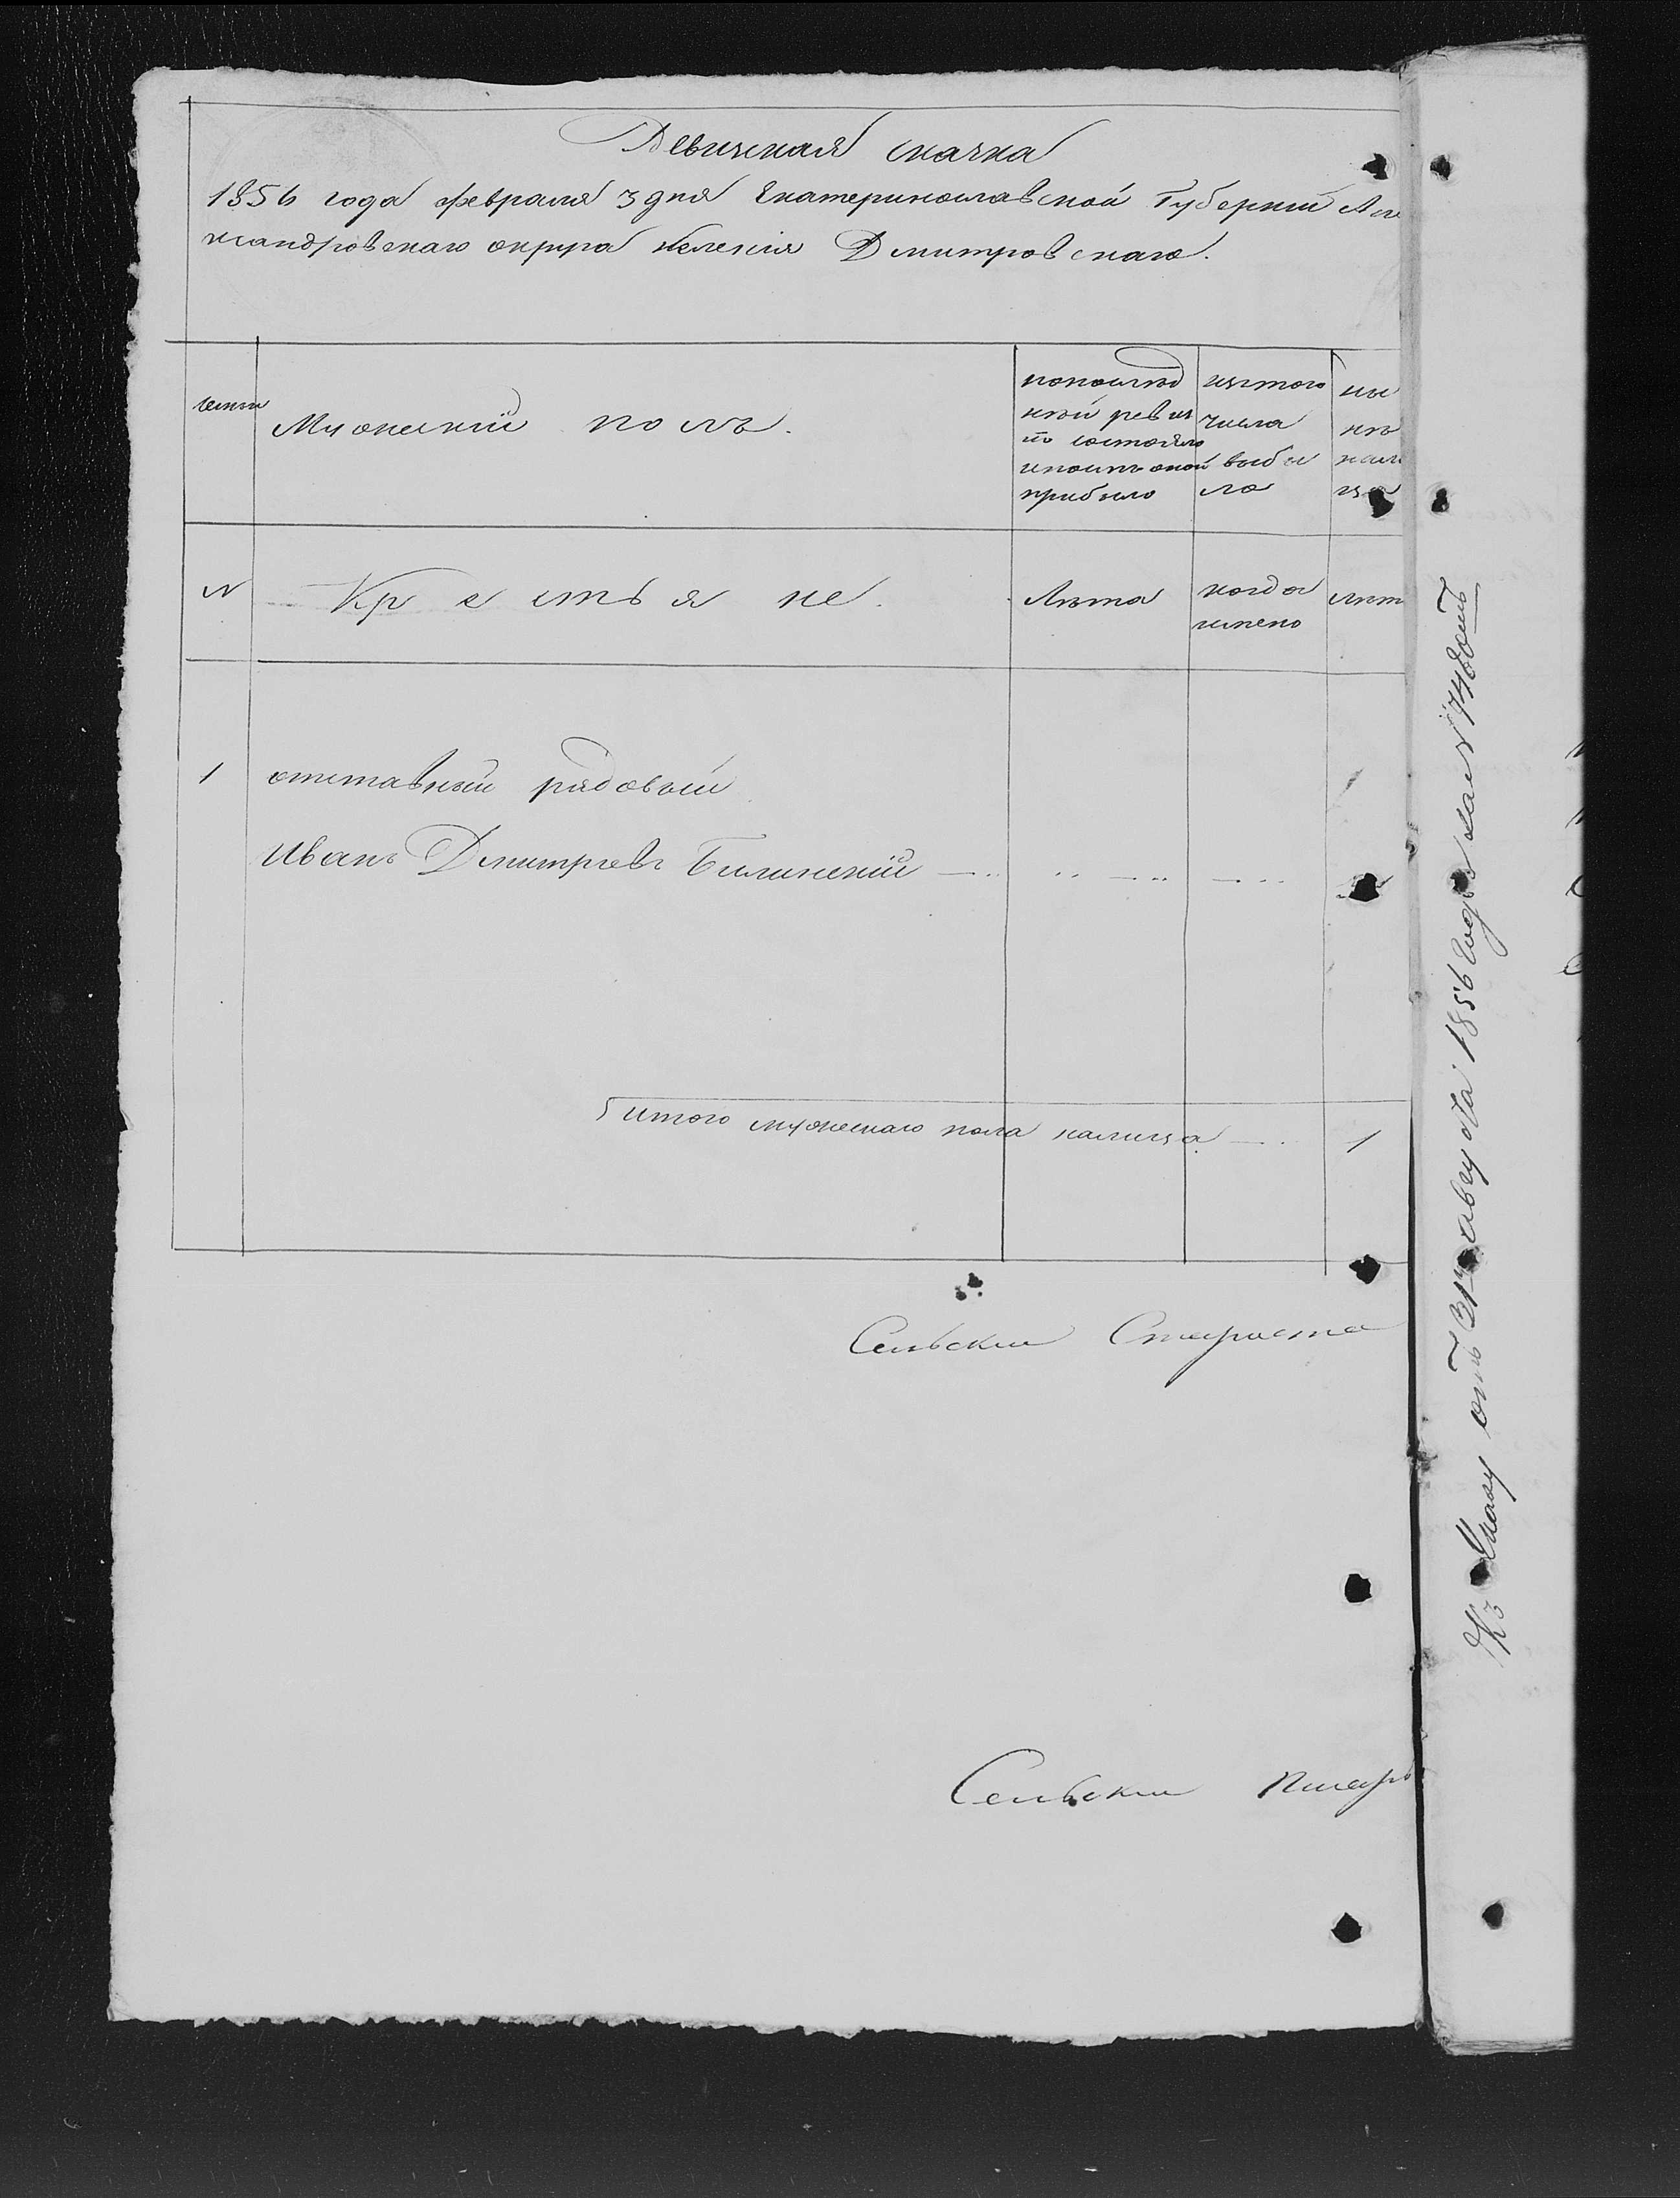 Ревизская сказка
1856 года февраля 3 дня Екатеринославской Губернии Але
ксандровскаго округа селенія Дмитровскаго.
Мужескій полъ.
попослед
ней ревиз
іи состояло
ипослѣ оной
прибыло
изтого
числа
выбы
ло
ны
нѣ
нали
цо
N
Крестьяне.
Лѣта
когда
имено
лѣт
1 отставный рядовый
Иванъ Дмитріевъ Билинскій
итого мужескаго пола налицо 1
Сельскии Староста
Сельскии Писарь
Къ Указу отъ 31го августа 1856 года за №